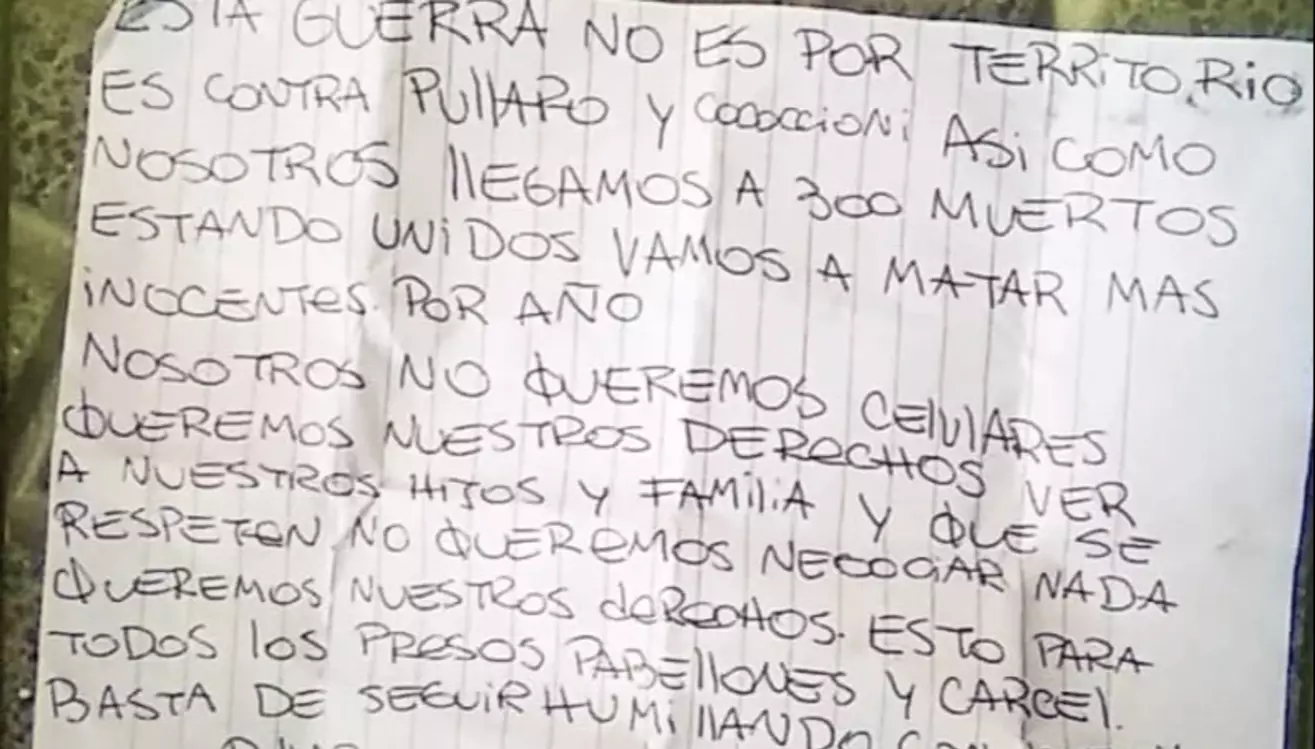 ESTA GUERRA NO ES POR TERRiTO.RiO
ES CONTRA PUllARO y COCOCCiONi ASi COMO
NOSOTROS llEGAMOS A 300 MUERTOS
ESTANDO UNiDOS VAMOS A MATAR MAS
iNOCENTeS. POR AÑO
NOSOTROS NO QUEREMOS CElulARES
QUEREMOS NUESTROS DERECHOS VER
A NUESTROS HIJOS Y FAMiliA Y QUE SE
RESPETEN NO QUEREMOS NEGOCiAR NADA
QUEREMOS NUESTROS deRECHOS. ESTO PARA
TODOS lOS PResOS PABEllONES Y CARCEl.
BASTA DE SEGUiR HUMillANDO